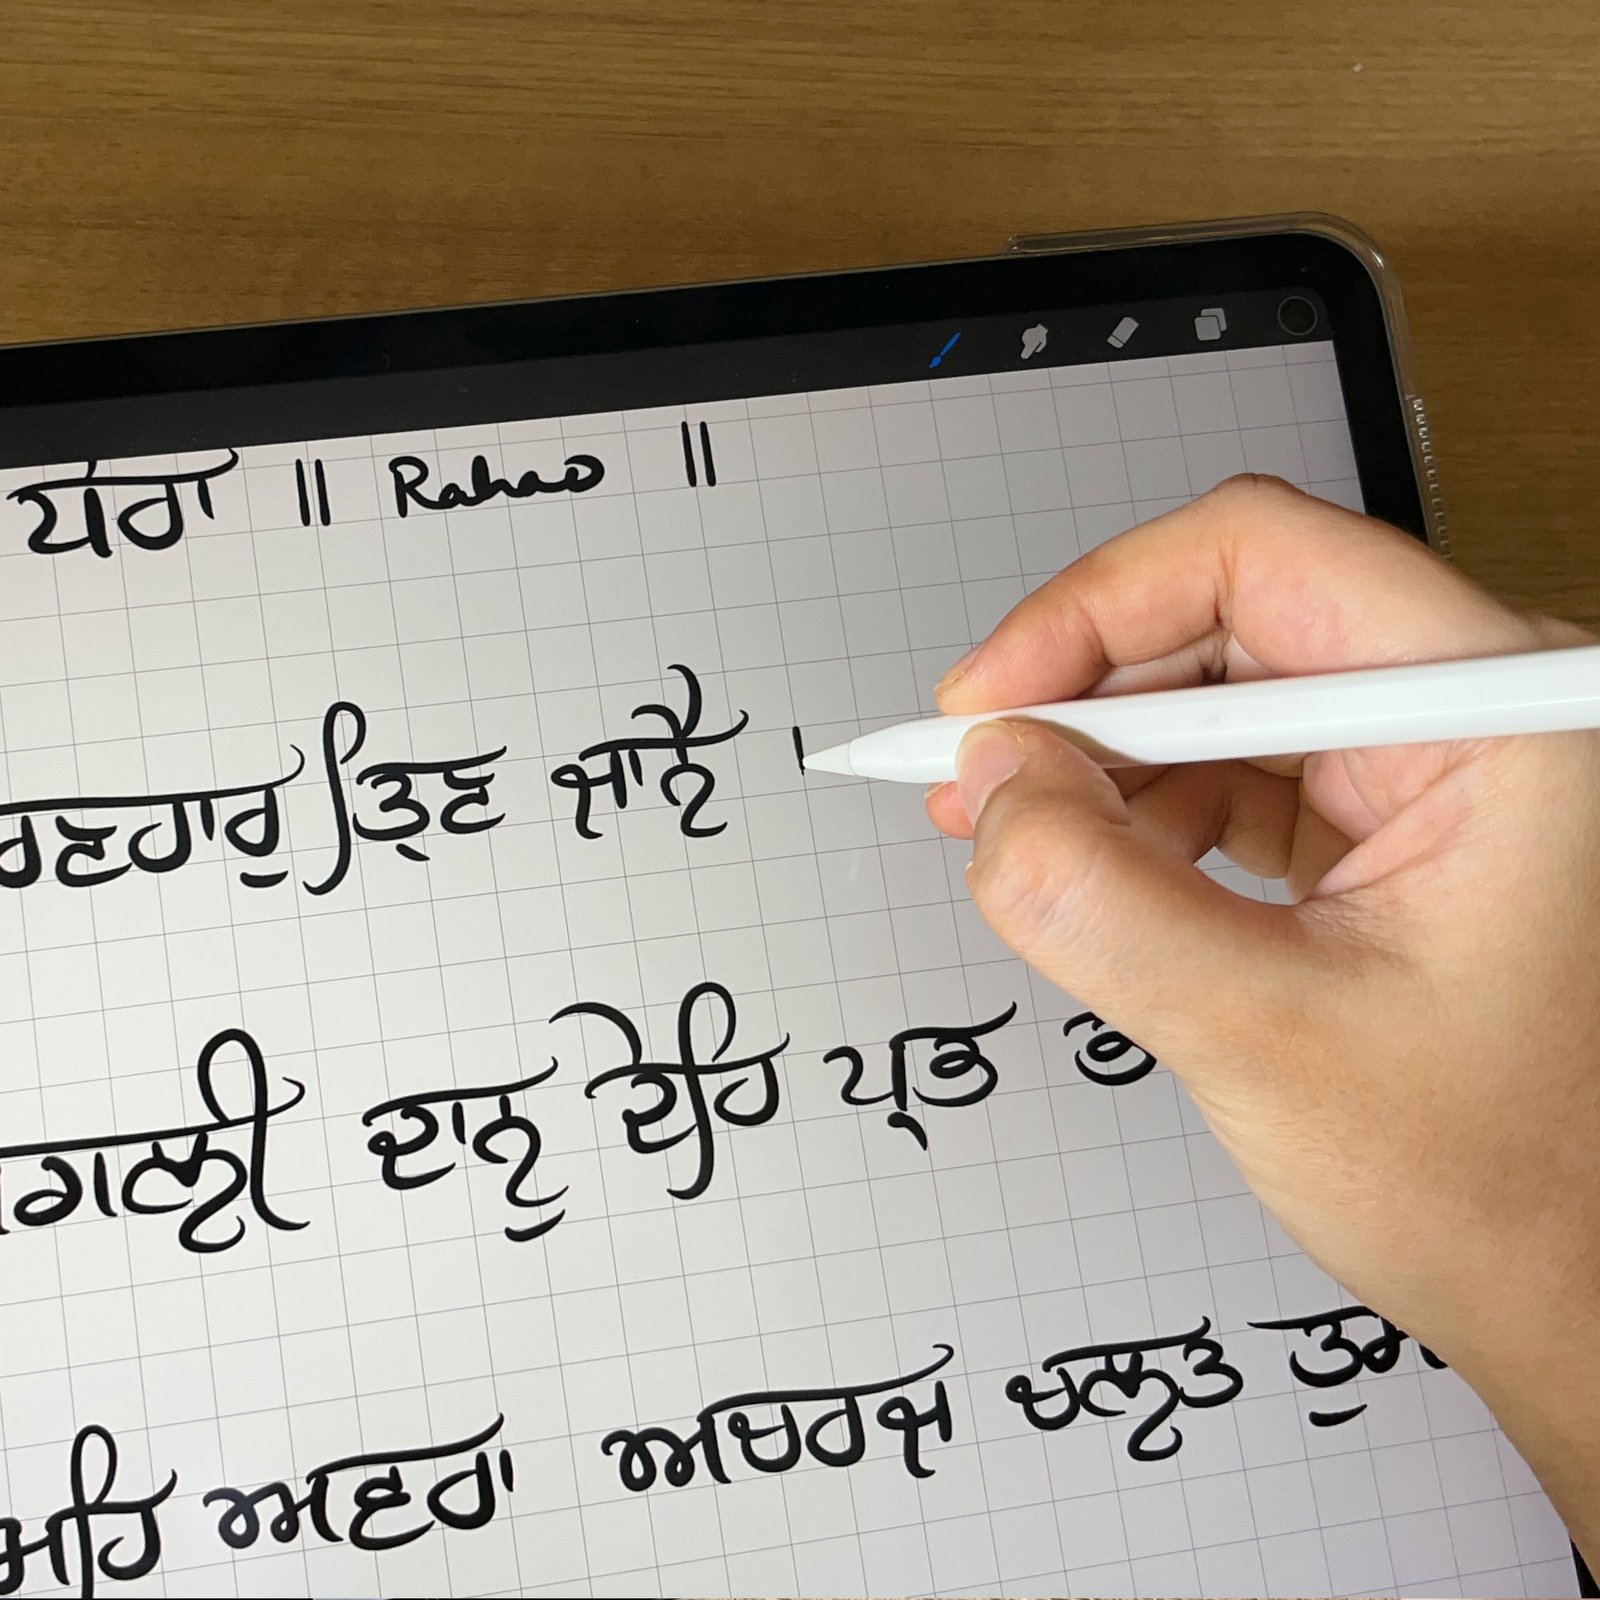 || Rahao ||
ਰਣਹਾਰੁ ਤ੍ਰਿਣ ਜਾਨੈ
ਗਲੀ ਦਾਨੁ ਦੇਹਿ ਪ੍ਰਭ
ਮਹਿ ਅਵਰਾ ਅਚਰਜ ਚਲਤ ਤੁਮ